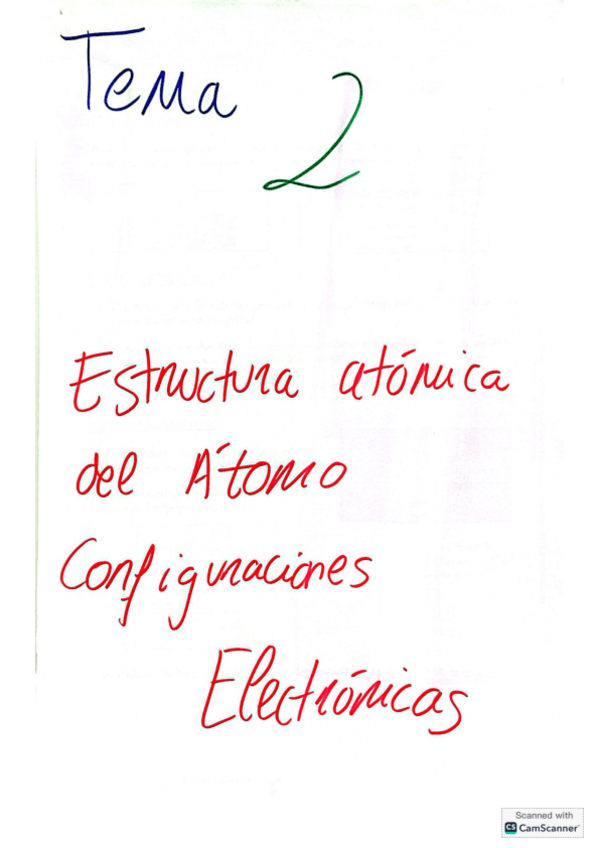 Tema
2
Estructura atómica
del Átomo
Configuraciones
Electrónicas
Scanned with
CS CamScanner